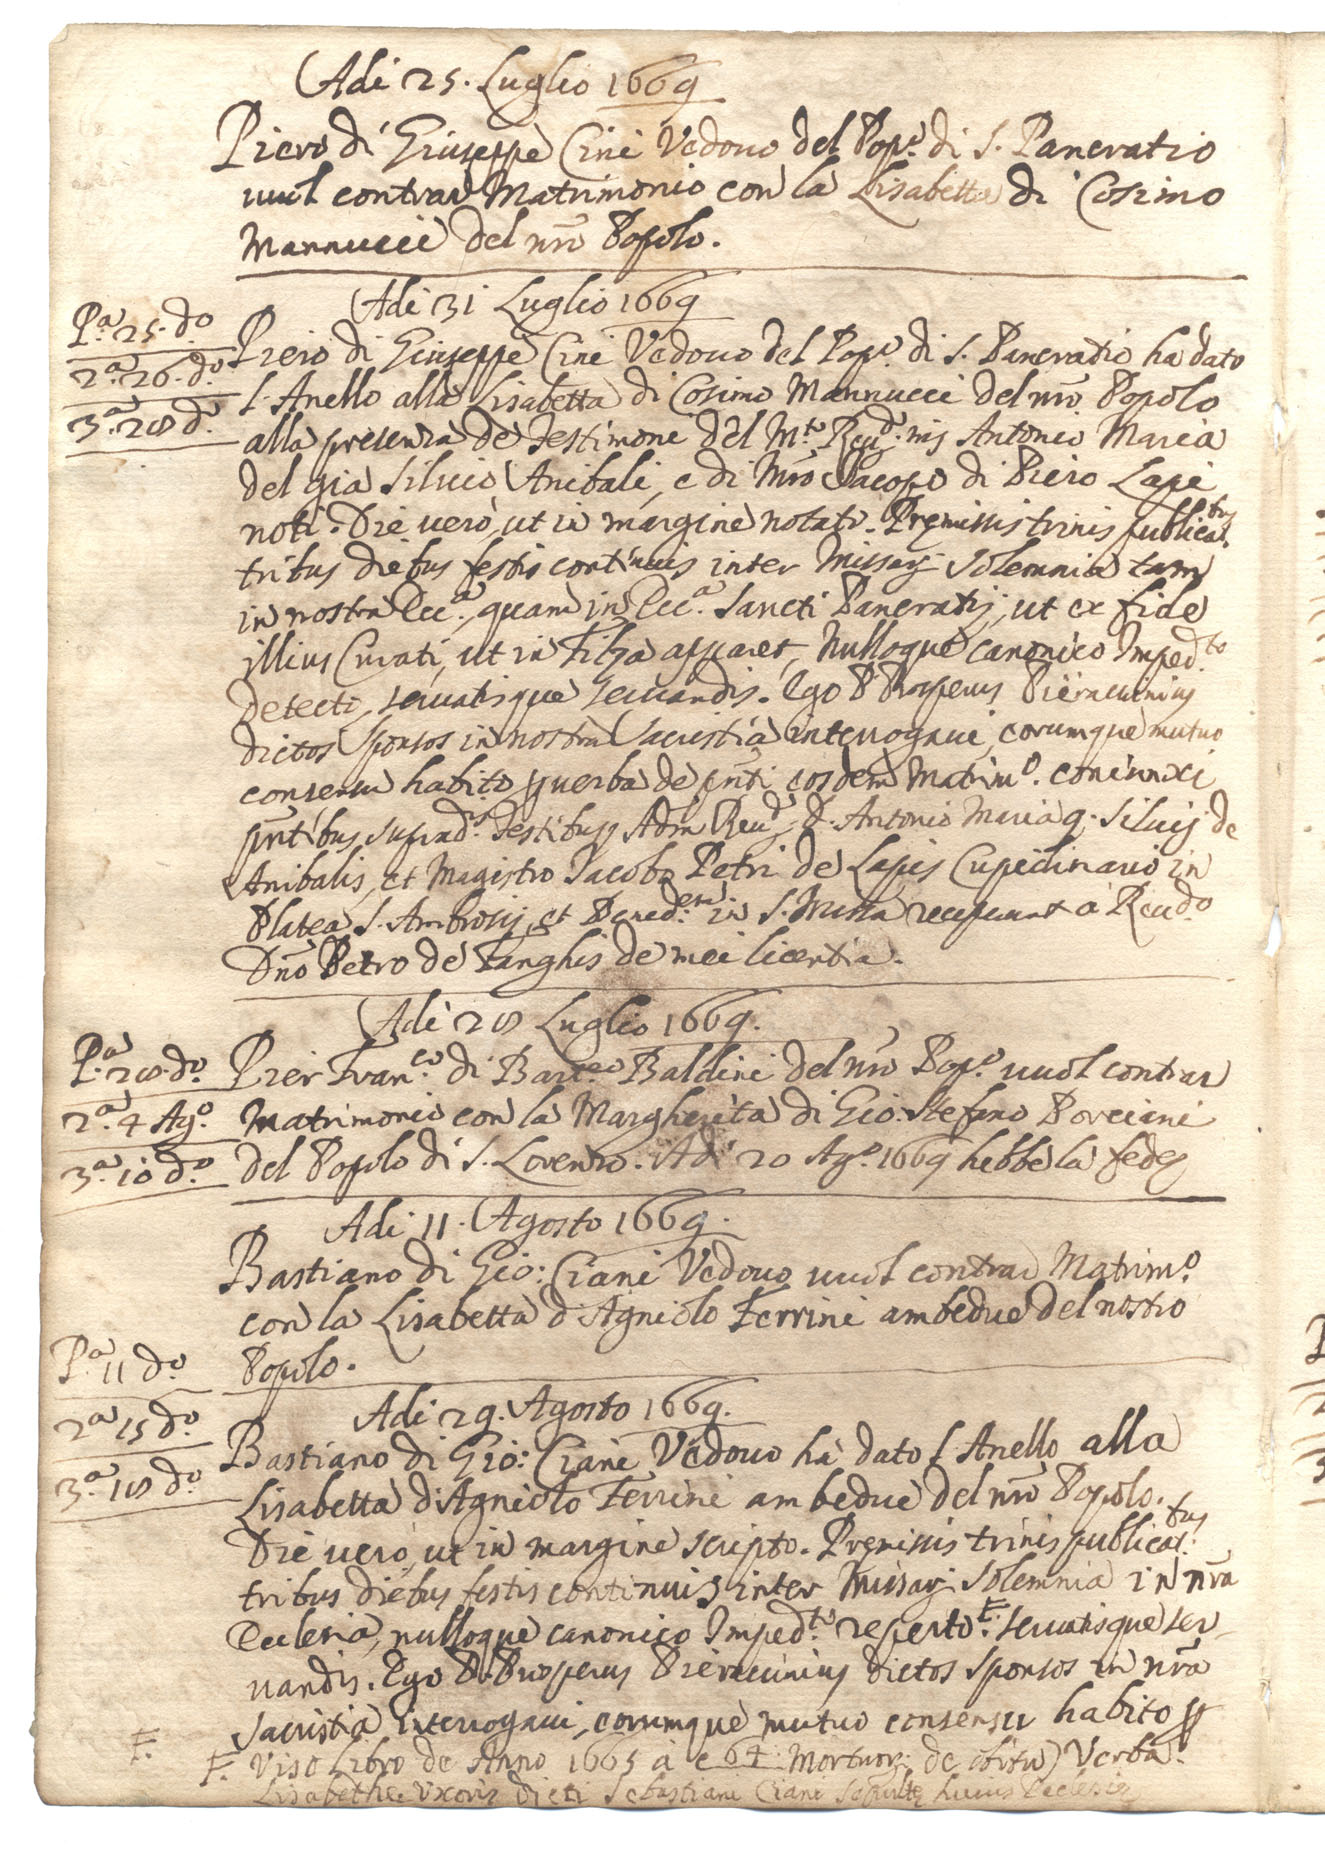 Adi 25. Luglio 1669
Piero di Giuseppe Cini Vedouo del Pop.º di S. Pancratio
uuol contrar Matrimonio con la Lisabetta di Cosimo
Mannucci del nrõ Popolo.
Adi 31 Luglio 1669
P.ª 25. dº
Piero di Giuseppe Cini Vedouo del Popº di S. Pancratio ha dato
2.ª 26. dº
l'Anello alla Lisabetta di Cosimo Mannucci del nrõ Popolo
3.ª 28 dº
alla presenza de Testimone del M.tº Reu.d Antonio Maria
del gia Siluio Anibali, e di Mrõ Jacopo di Piero Lapi
noti. Die uerò, ut in margine notatr. Premissis trinis publicat.tus
tribus diebus festis continuis inter Missarz solemnia tam
in nostra Ecc.ª, quam in Ecc.ª Sancti Pancratij, ut ex fide
illius Curati, ut in Filza apparet, Nulloque canonico Imped.to
detecto, seruatisque seruandis. Ego P. Prosperus Pieraccinius
dictos Sponsos in nostra Sacristia interrogaui, eorumque mutuo
consensu habito, p uerba de pnti eosdem Matrim.º coniunxi
pntibus suprad.s Testibus Adm Reu.d D. Antonio Maria q. Siluij de
Anibalis, et Magistro Jacobo Petri de Lapis Cupedinario in
Platea S. Ambrosij, et Bened.em in S. Missa receperunt à Reu.dº
Dnõ Petro de Fanghis de mei licentia.
Adi 28 Luglio 1669.
P.ª 28. dº
Pier Fran.co di Bart.eo Baldini del nrõ Pop.º uuol contrar
2.ª 4 Ag.º
Matrimonio con la Margherita di Gio: Stefano Porciani
3.ª 10 dº
del Popolo di S. Lorenzo. Adi 20 Ag.º 1669 hebbe la fede
Adi 11. Agosto 1669.
Bastiano di Gio: Ciani Vedouo uuol contrar Matrim.º
con la Lisabetta d'Agniolo Ferrini ambedue del nostro
P.ª 11 dº
Popolo.
2.ª 15 dº
Adi 29. Agosto 1669.
Bastiano di Gio: Ciani Vedouo ha dato l'Anello alla
3.ª 18 dº
Lisabetta d'Agniolo Ferrini ambedue del nrõ Popolo.
Die uerò, ut in margine scripto. Premissis trinis publicat.tus
tribus diebus festis continuis inter Missarz Solemnia in nrã
Ecclesia, nulloque canonico Imped.tº reperto F. seruatisque ser
uandis. Ego P. Prosperus Pieraccinius dictos Sponsos in nrã
Sacristia interrogaui, eorumque mutuo consensu habito p
F.
F. Viso Libro de Anno 1665 à c 64 Mortuor. de obitu) Verba.
Lisabethe Uxoris dicti Sebastiani Ciani Sepulte huius Ecclesie